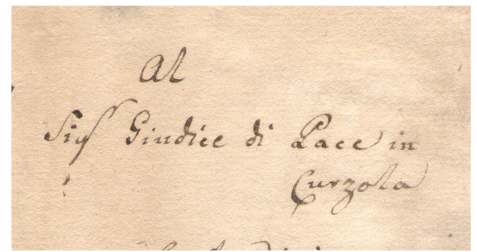 Al
Sigr Giudice di Pace in
Curzola